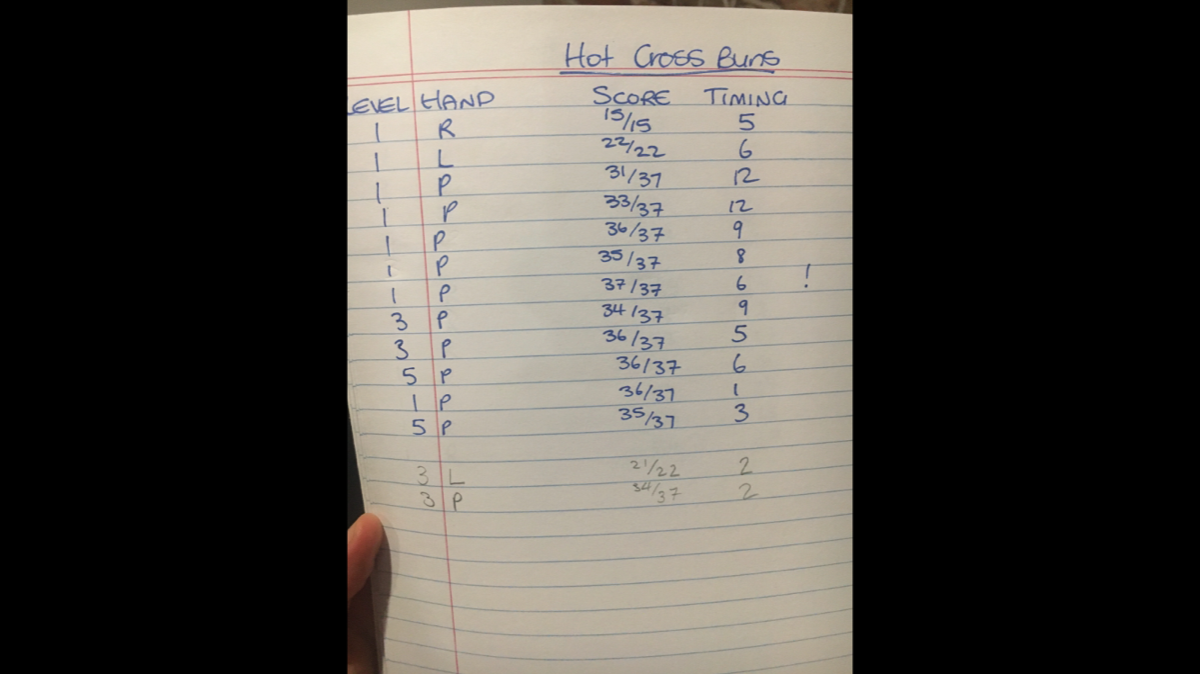 Hot Cross Buns
LEVEL HAND SCORE TIMING
1 R 15/15 5
1 L 22/22 6
1 P 31/37 12
1 P 33/37 12
1 P 36/37 9
1 P 35/37 8
1 P 37/37 6 !
3 P 34/37 9
3 P 36/37 5
5 P 36/37 6
1 P 36/37 1
5 P 35/37 3
3 L 21/22 2
3 P 34/37 2